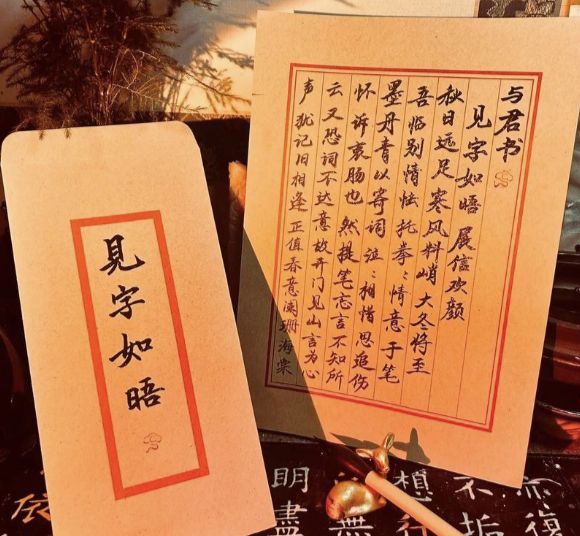 与君书
见字如晤 展信欢颜
秋日远足 寒风料峭 大冬将至
吾临别情怯 托拳〻情意于笔
墨丹青以寄词 泣〻相惜 思追伤
怀诉衷肠也 然提笔忘言 不知所
云 又恐词不达意 故开门见山 言为心
声 犹记旧相逢 正值春意阑珊 海棠
見字如晤
亦復
不垢
想行
無
明盡
依